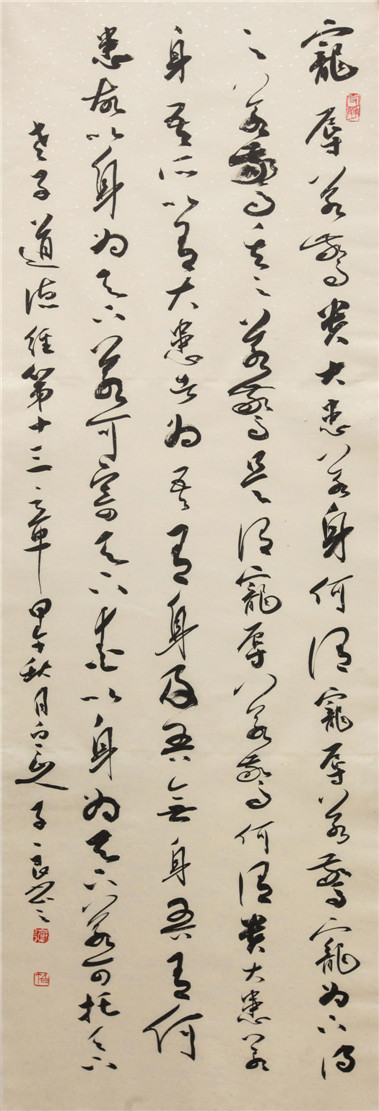 寵辱若驚貴大患若身何謂寵辱若驚寵為下得
之若驚失之若驚是謂寵辱若驚何謂貴大患若
身吾所以有大患者為吾有身及吾無身吾有何
患故以身為天下若可寄天下愛以身為天下若可托天下
老子道德經第十三章甲午秋月子良書